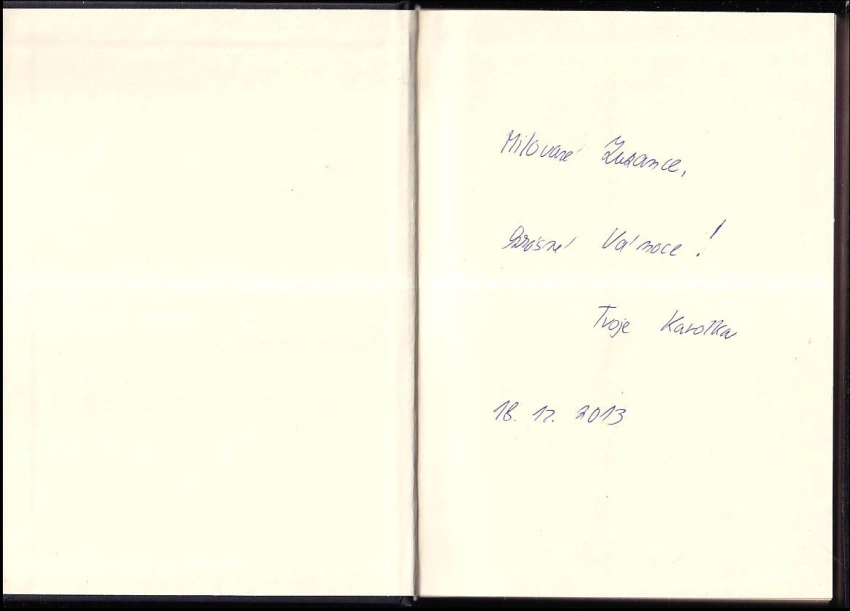 Milované Zuzance,
Krásné Vánoce!
Tvoje Karolka
18. 12. 2013